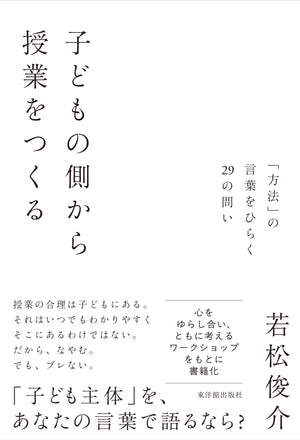 子どもの側から
授業をつくる
「方法」の
言葉をひらく
29の問い
授業の合理は子どもにある。
それはいつでもわかりやすく
そこにあるわけではない。
だから、なやむ。
でも、ブレない。
心を
ゆらし合い、
ともに考える
ワークショップ
をもとに
書籍化
若松俊介
東洋館出版社
「子ども主体」を、
あなたの言葉で語るなら?